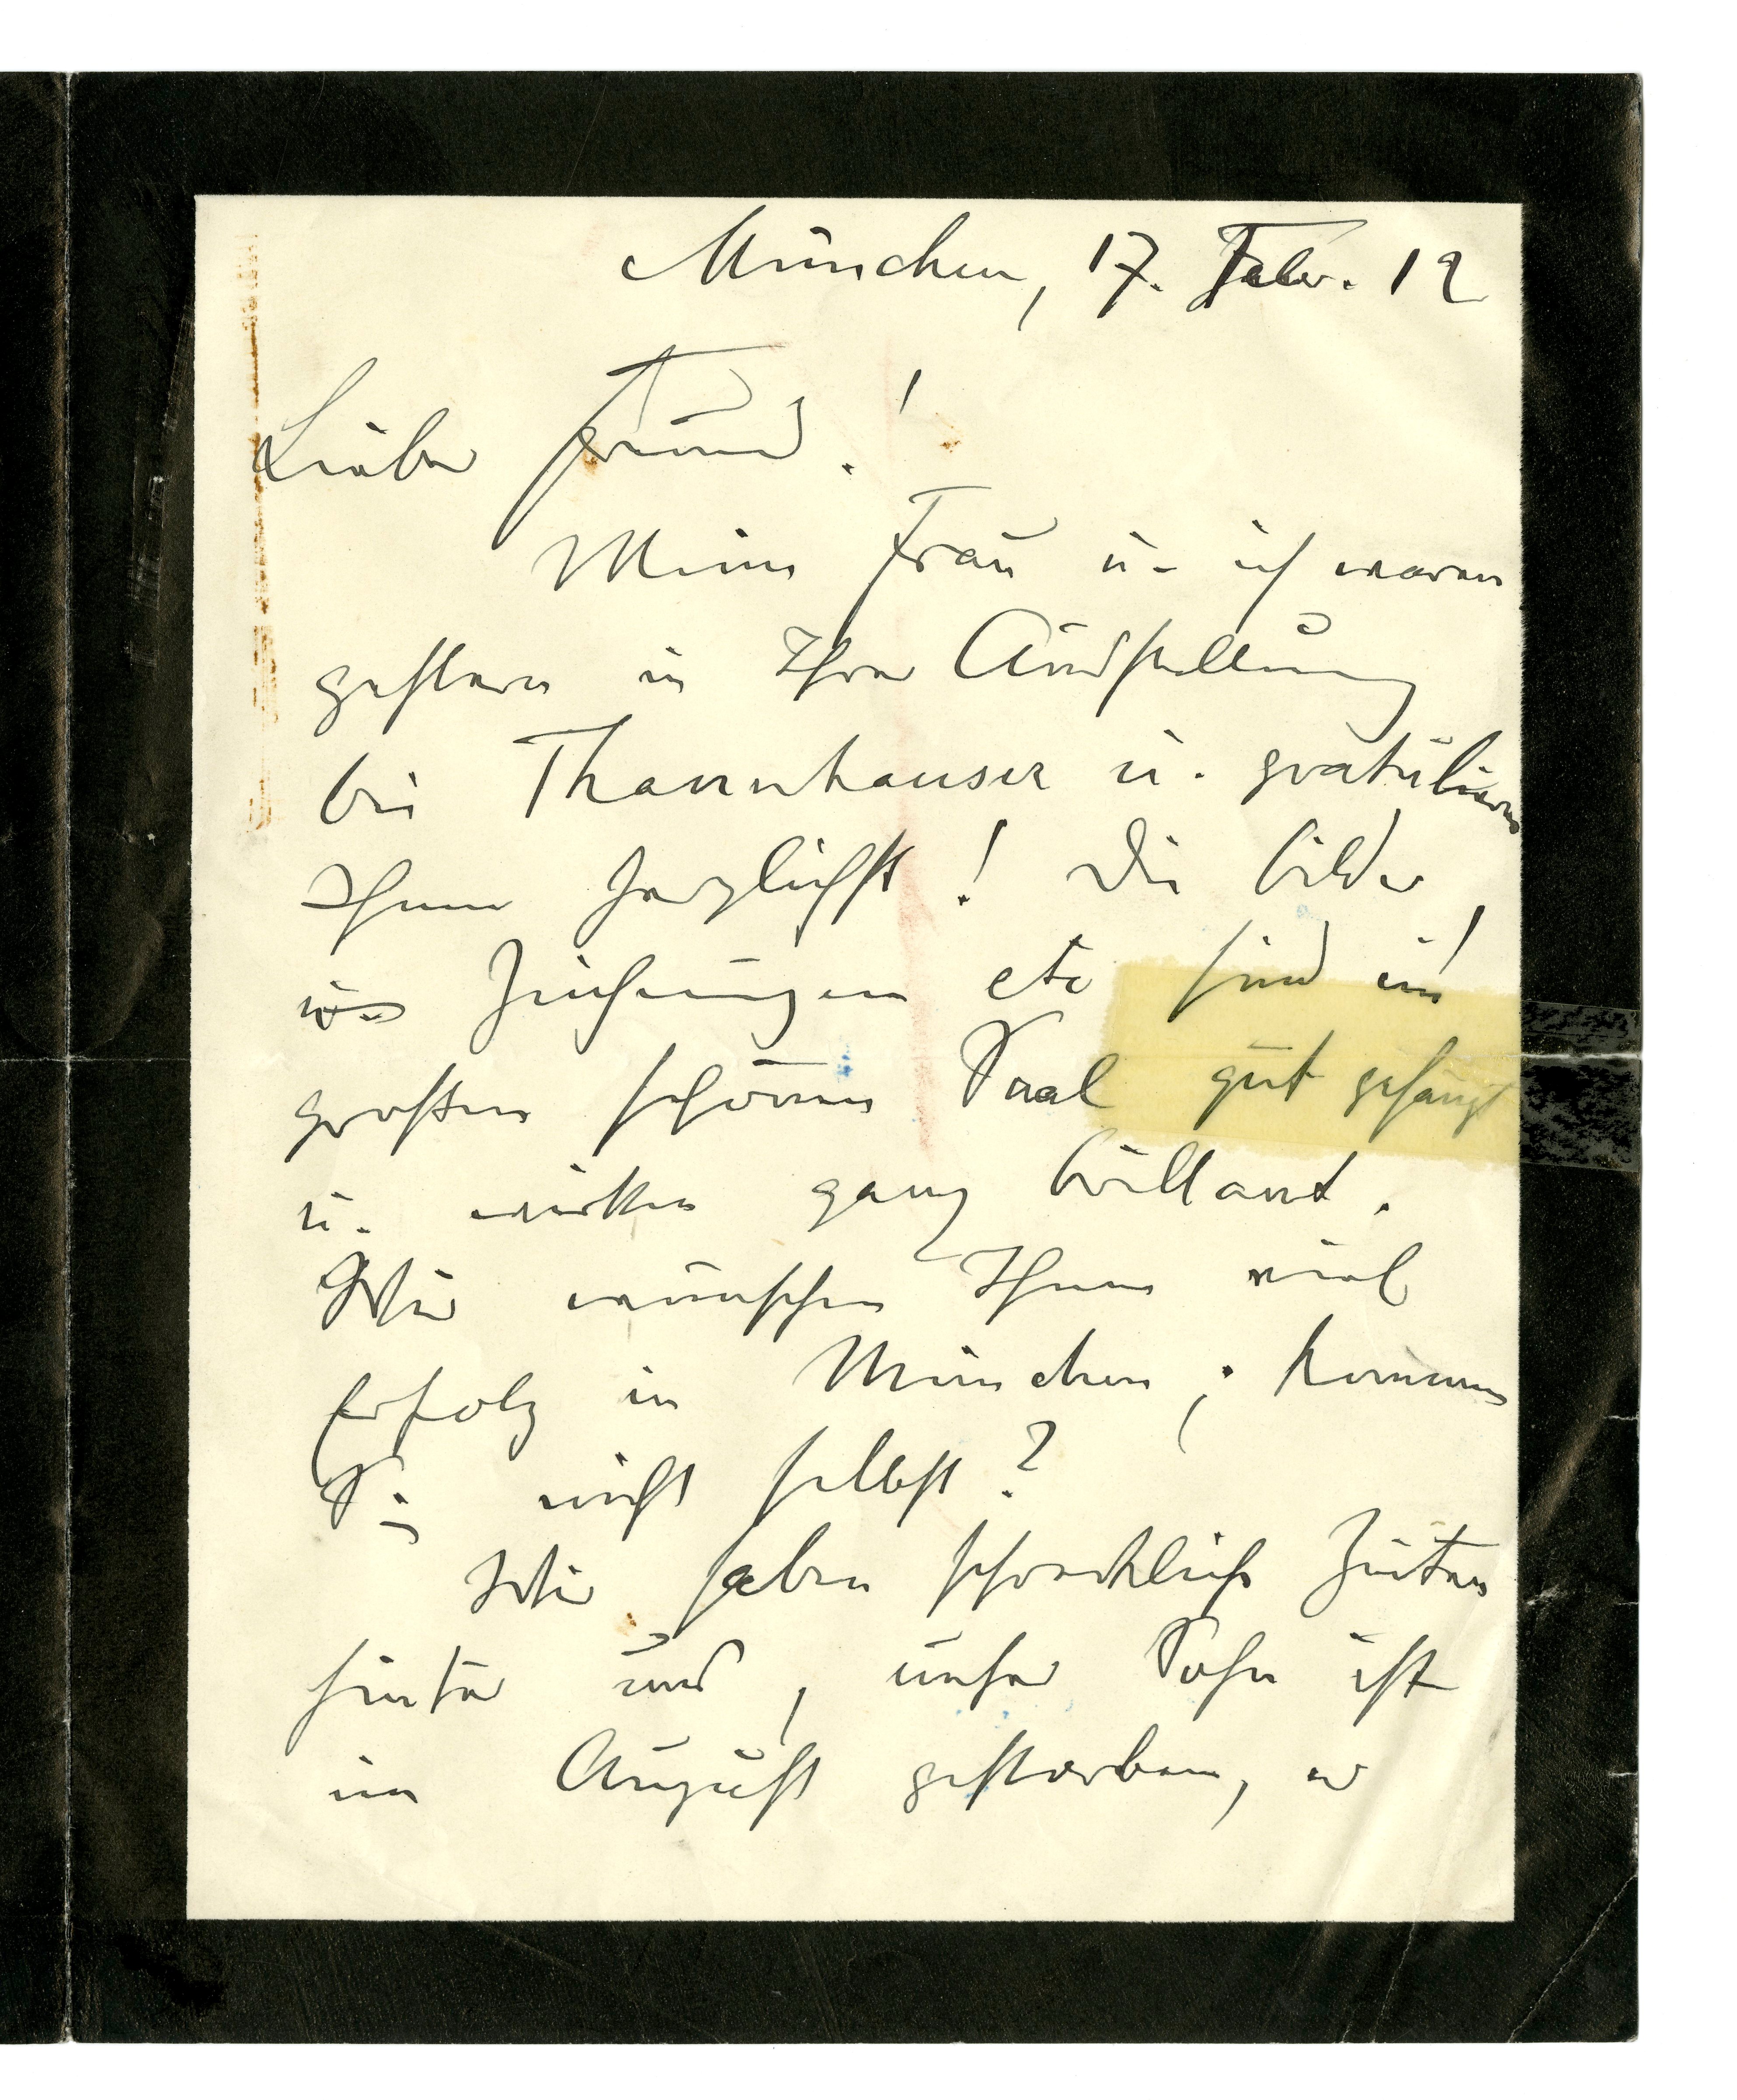 München, 17. Febr. 12
Lieber Freund!
Meine Frau u. ich waren
gestern in Ihrer Ausstellung
bei Thannhauser u. gratulieren
Ihnen herzlichst! Die Bilder,
u. Zeichnungen etc sind im
großen schönen Saal gut gehängt
u. wirken ganz brillant.
Wir wünschen Ihnen viel
Erfolg in München; kommen
Sie nicht selbst?
Wir haben schreckliche Zeiten
hinter uns, unser Sohn ist
im August gestorben, er